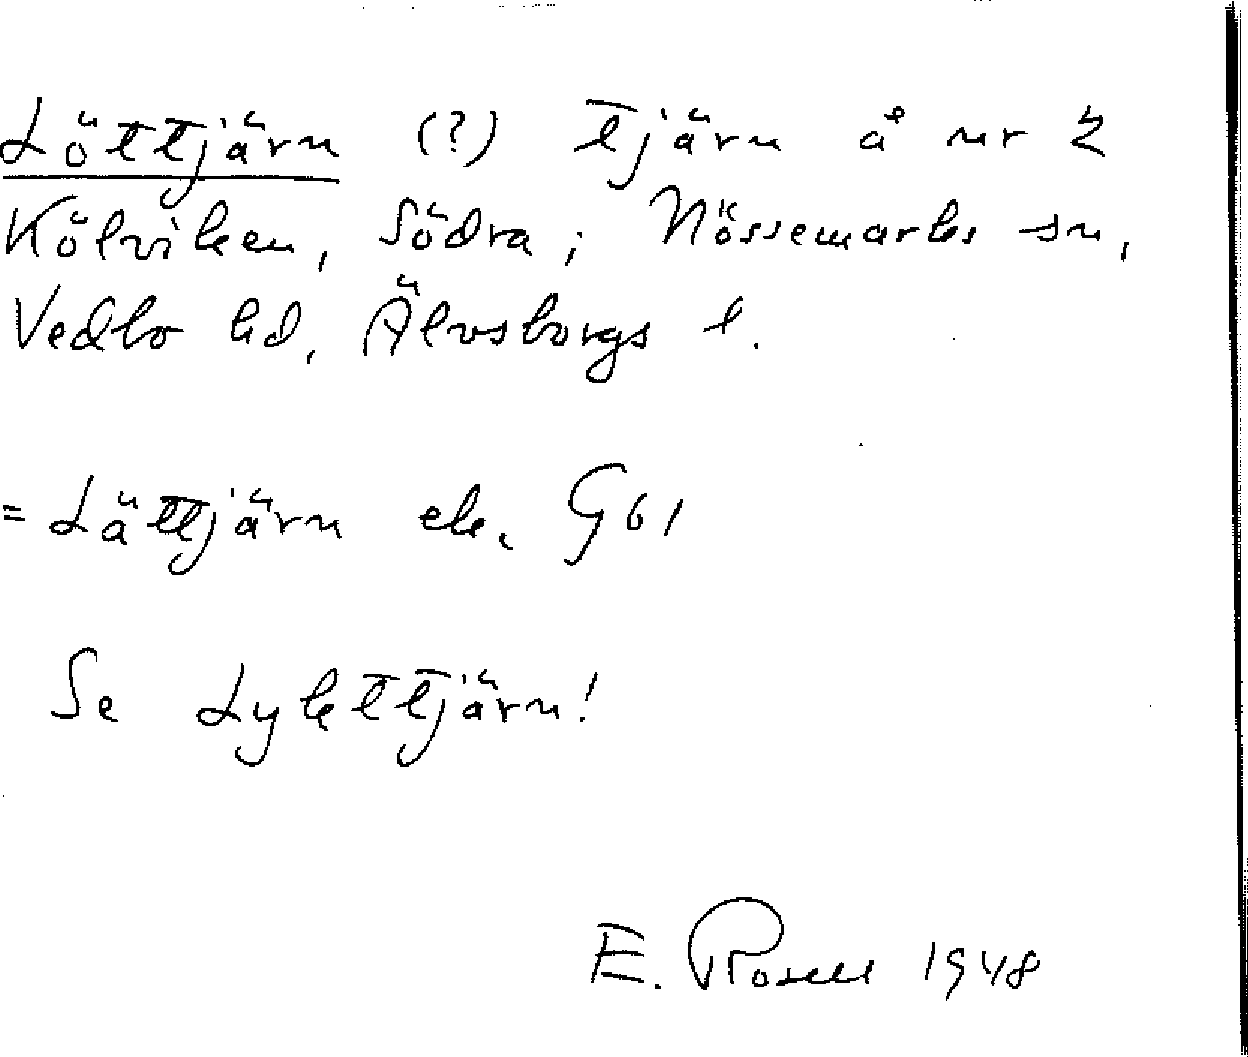 Löttjärn (?) Tjärn å nr 2
Kölviken, Södra; Nössemarks sn,
Vedbo hd, Älvsborgs l.
= Lättjärn ek. G61
Se Lykttjärn!
E. Rosell 1948